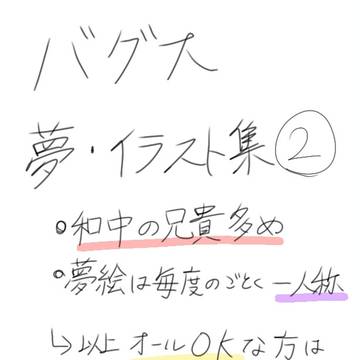 バグ大
夢・イラスト集②
・和中の兄貴多め
・夢絵は毎度のごとく一人称
↳以上オールOKな方は